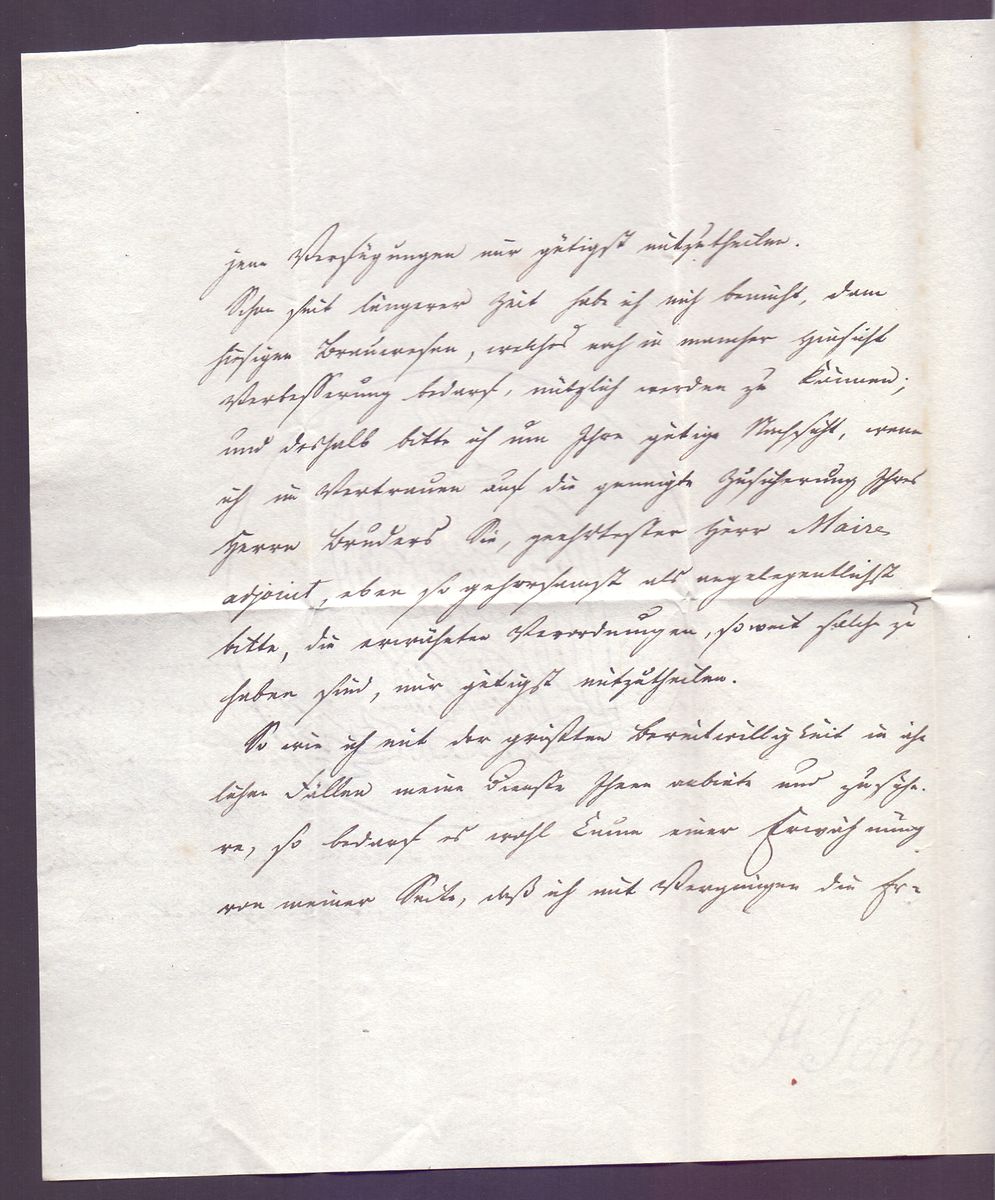 jene Verfügungen mir gütigst mitzutheilen.
Schon seit längerer Zeit habe ich mich bemüht, dem
hiesigen Brauwesen, welches noch in mancher Hinsicht
Verbesserung bedarf, nützlich werden zu können;
und deshalb bitte ich um Ihre gütige Nachsicht, wenn
ich im Vertrauen auf die geneigte Zusicherung Ihres
Herrn Bruders Sie, geehrtester Herr Maire
adjoint, eben so gehorsamst als angelegentlichst
bitte, die erwähnten Verordnungen, so weit solche zu
haben sind, mir gütigst mitzutheilen.
So wie ich mit der größten Bereitwilligkeit in ähn
lichen Fällen meine Dienste Ihnen anbiete und zusiche-
re, so bedarf es wohl kaum einer Erwähnung
von meiner Seite, daß ich mit Vergnügen die Er=